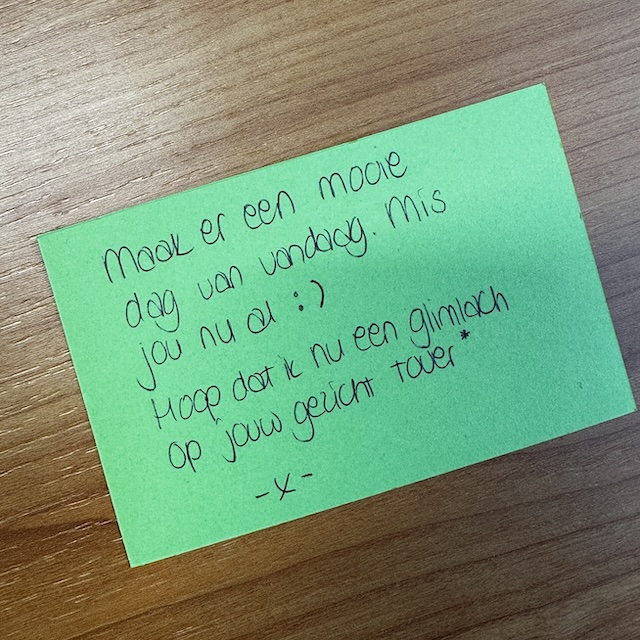 Maak er een mooie
dag van vandaag. Mis
jou nu al :)
Hoop dat ik nu een glimlach
op jouw gezicht tover*
-x-